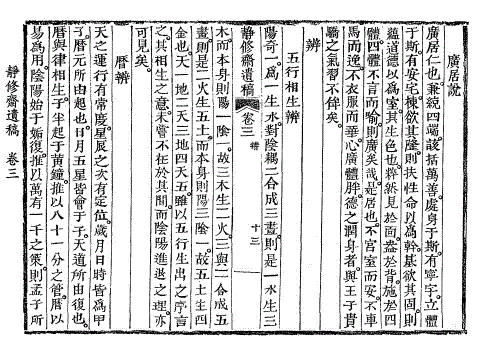 廣居說
廣居仁也兼統四端該括萬善處身于斯有寧宇立體
于斯有安宅棟欲其隆則扶性命以爲幹基欲其固則
蘊道德以爲室其生色也粹然見於面盎於背施於四
體四體不言而喻則廣矣哉是居也不宮室而安不車
馬而逸不衣服而華心廣體胖德之潤身者與王于貴
驕之氣習不侔矣
辨
五行相生辨
陽奇一爲一生水對陰耦二合成三畫則是一水生三
靜修齋遺稿 卷三 十三
木而本身則陽一陰一故三木生二火三與二合成五
畫則是二火生五土而本身則陽三陰一故五土生四
金也天一地二天三地四天五雖以五行生出之序言
之其相生之意未嘗不在於其間而陰陽進退之理亦
可見矣
曆辨
天之運行有常度星辰之次有定位歲月日時皆爲甲
子曆元所由起也日月五星皆會于子天道所由復也
曆與律相生于半起于黃鐘推以八十一分之管曆以
易爲用陰陽始于姤復推以萬有一千之策則孟子所
靜修齋遺稿 卷三